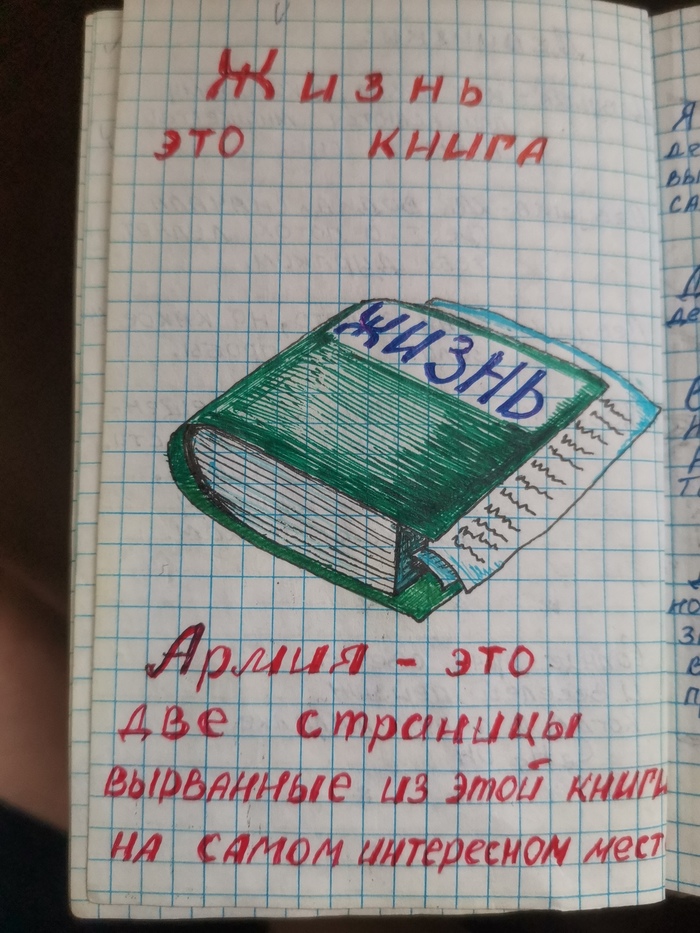 Жизнь
это книга
ЖИЗНЬ
Армия - это
две страницы
вырванные из этой книги
на самом интересном мест
Я
де
вы
са
де
Н
Т
но